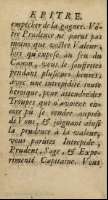 EPITRE.
empêcher de la gagner. Vô-
tre Prudence ne parut pas
moins que vôtre Valeur,
lors qu'exposé au feu du
Canon, vous le souffrîtes
pendant plusieurs heures
avec une intrepidité toute
heroique, pour attendre des
Troupes qui n'avoient en-
core pû se rendre auprés
de vous. Et joignant ainsi
la prudence à la valeur,
vous parûtes Intrepide,
Prudent, Sage, & Expe-
rimenté Capitaine. Vous